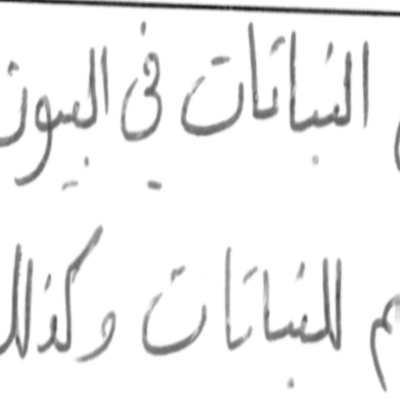 النباتات في البيوت
للنباتات وكذلك